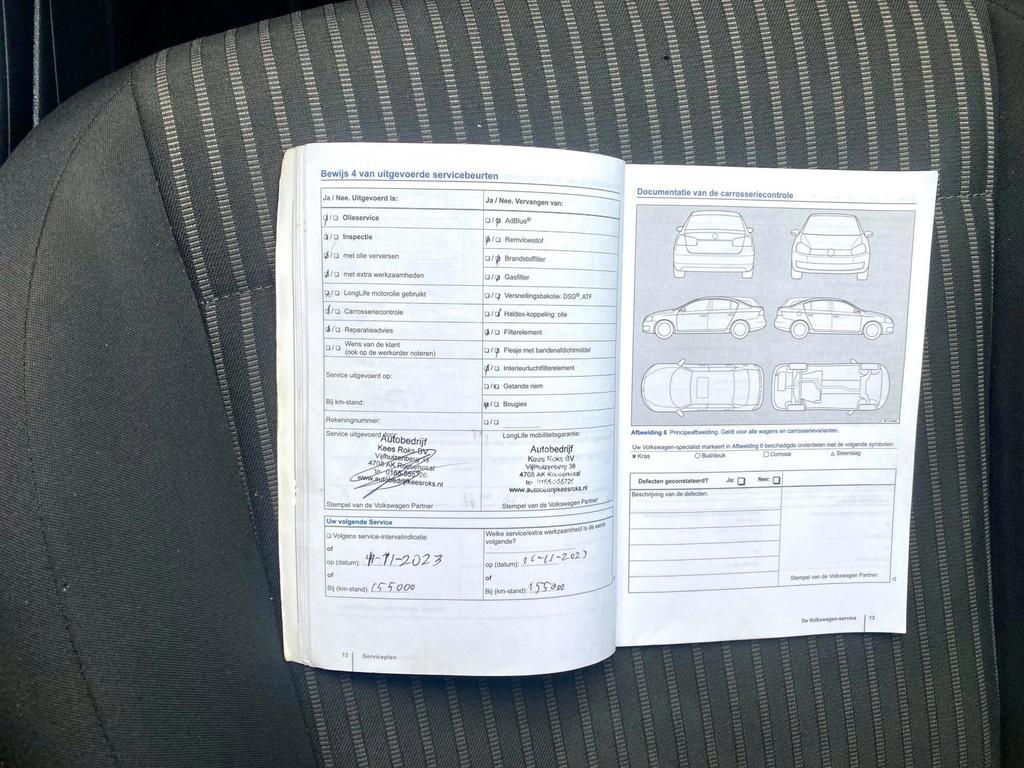 Bewijs 4 van uitgevoerde servicebeurten
Ja / Nee. Uitgevoerd is:
❑ / ❑ Olieservice
❑ / ❑ Inspectie
❑ / ❑ met olie verversen
❑ / ❑ met extra werkzaamheden
❑ / ❑ LongLife motorolie gebruikt
❑ / ❑ Carrosseriecontrole
❑ / ❑ Reparatieadvies
❑ / ❑ Wens van de klant
(ook op de werkorder noteren)
Service uitgevoerd op:
Bij km-stand:
Rekeningnummer:
Service uitgevoerd door:
Autobedrijf
Kees Roks BV
Vijfhuizenberg 38
4708 AK Roosendaal
tel. 0165-555726
www.autobedrijfkeesroks.nl
Stempel van de Volkswagen Partner
Ja / Nee. Vervangen van:
❑ / ❑ AdBlue®
❑ / ❑ Remvloeistof
❑ / ❑ Brandstoffilter
❑ / ❑ Gasfilter
❑ / ❑ Versnellingsbakolie: DSG®, ATF
❑ / ❑ Haldex-koppeling: olie
❑ / ❑ Filterelement
❑ / ❑ Flesje met bandenafdichtmiddel
❑ / ❑ Interieurluchtfilterelement
❑ / ❑ Getande riem
❑ / ❑ Bougies
❑ / ❑
LongLife mobiliteitsgarantie:
Autobedrijf
Kees Roks BV
Vijfhuizenberg 38
4708 AK Roosendaal
tel. 0165-555726
www.autobedrijfkeesroks.nl
Stempel van de Volkswagen Partner
Uw volgende Service
❑ Volgens service-intervalindicatie
of
op (datum): 11-11-2023
of
Bij (km-stand): 155000
Welke service/extra werkzaamheid is de eerst-
volgende?
op (datum): 11-11-2023
of
Bij (km-stand): 155000
12 Serviceplan
Documentatie van de carrosseriecontrole
Afbeelding 6 Principeafbeelding. Geldt voor alle wagens en carrosserievarianten.
Uw Volkswagen-specialist markeert in Afbeelding 6 beschadigde onderdelen met de volgende symbolen:
× Kras O Buil/deuk □ Corrosie △ Steenslag
Defecten geconstateerd? Ja: ❑ Nee: ❑
Beschrijving van de defecten:
Stempel van de Volkswagen Partner
De Volkswagen-service 13